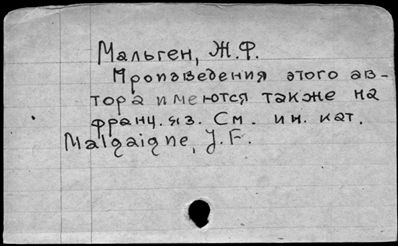 Мальген, Ж.Ф.
Произведения этого ав-
тора имеются также на
франц. яз. См. ин. кат.
Malgaigne, J. F.